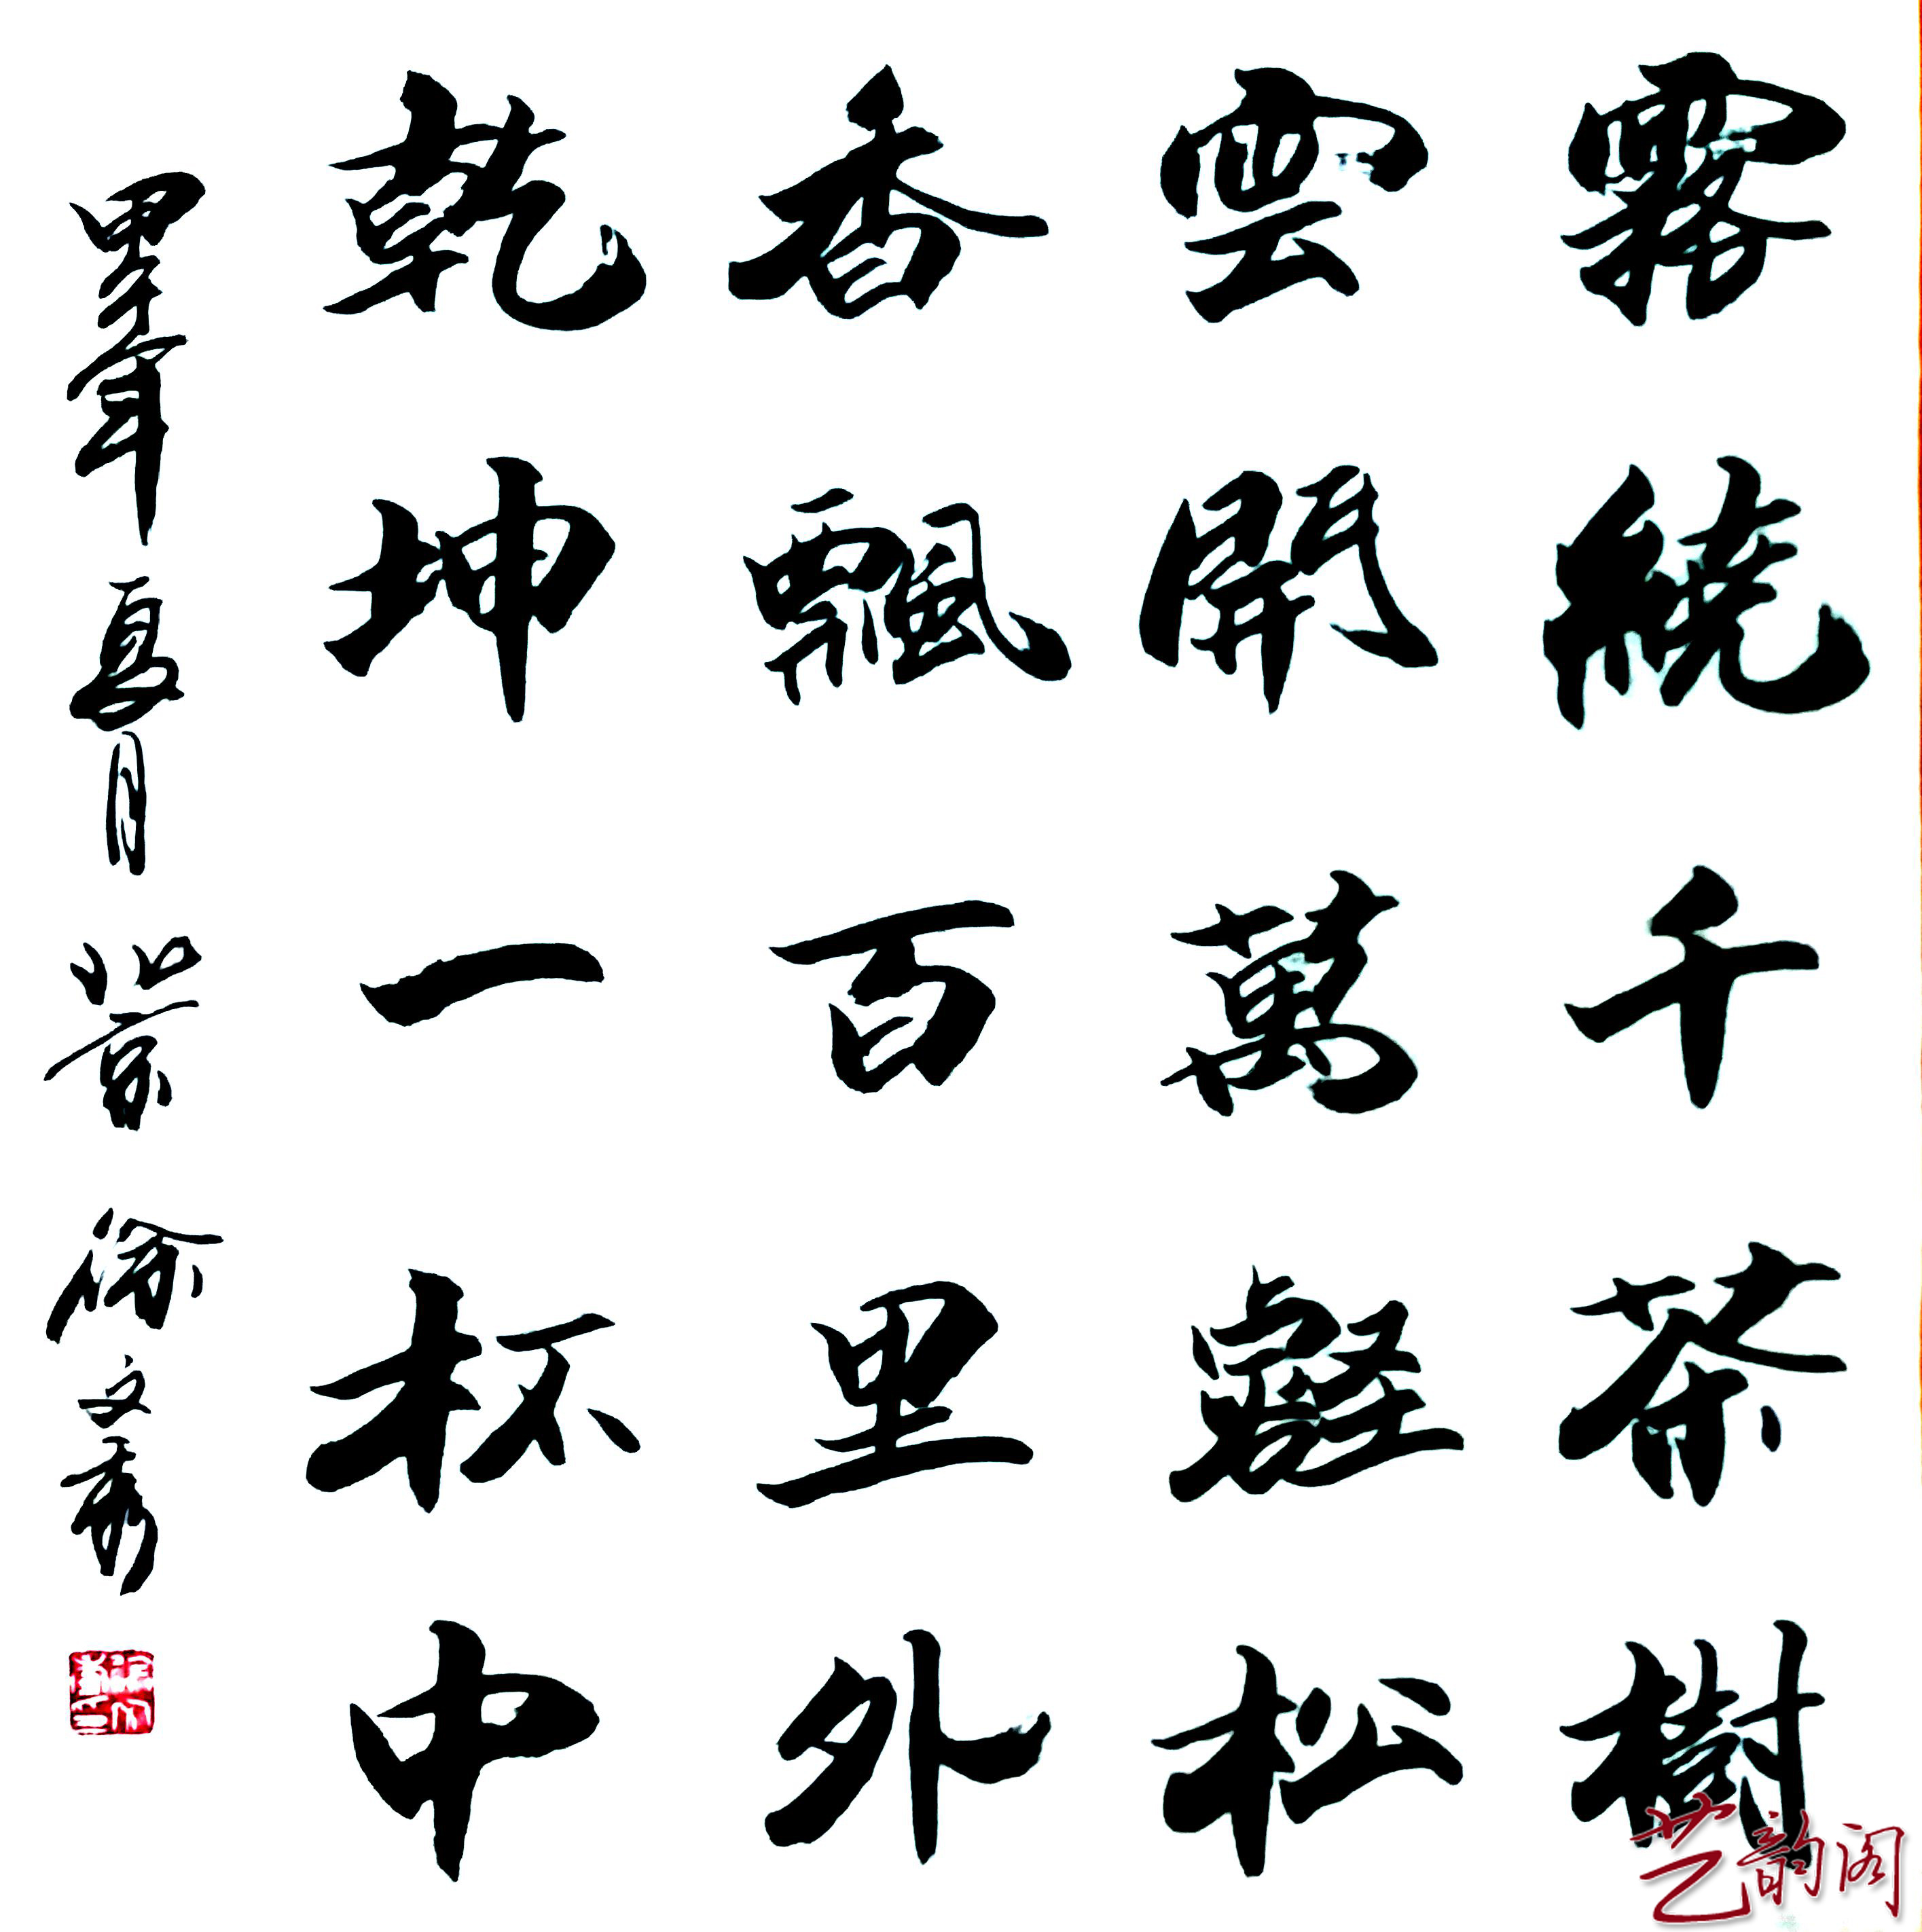 霧繞千茶樹
雲開萬壑松
香飄百里外
乾坤一杯中
甲辰年夏月 徐文秀
艺韵阁